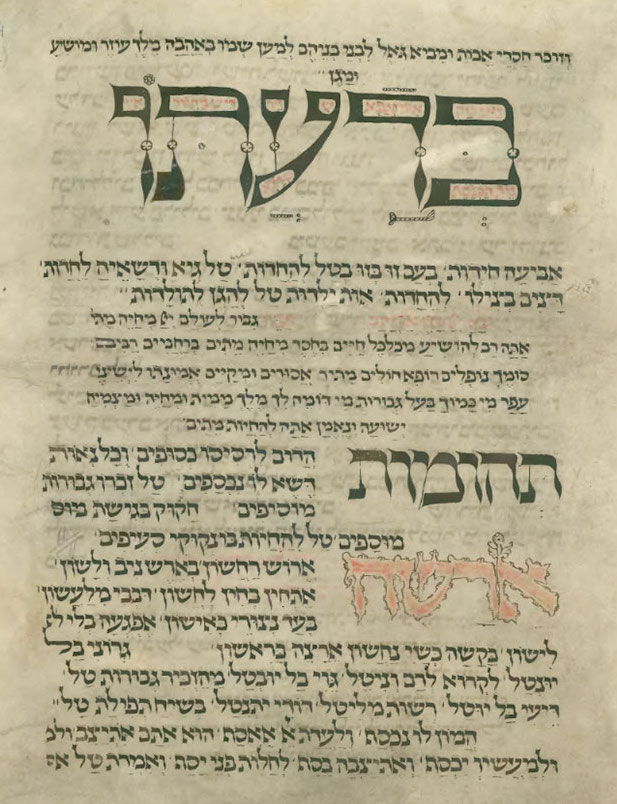 וזוכר חסדי אבות ומביא גואל לבני בניהם למען שמו באהבה מלך עוזר ומושיע
ומגן
בדעתו
אביעה חידות בעם זו בזו בטל להחדות טל גיא ודשאיה לחדות
דיצים בצילו להחדות אות ילדות טל להגן לתולדות
גבור לעולם יי מחיה מתי
אתה רב להושיע מכלכל חיים בחסד מחיה מתים ברחמים רבים
סומך נופלים רופא חולים מתיר אסורים ומקיים אמונתו לישיני
עפר מי כמוך בעל גבורות מי דומה לך מלך ממית ומחיה ומצמיח
ישועה ונאמן אתה להחיות מתים
תהומות
הדום לרסיסו כסופים וכל נאות
דשא לו נכספים טל זכרו גבורות
מוסיפים חקוק בגישת מוס
מוספים טל להחיות בו נקוקי סעיפים
ארשה
ארוש רחשון בארש ניב ולשון
אתחין בחין לחשון
בעד נצורי כאישון אפגעה בלי
לישון בקשה כשי נחשון ארצה בראשון גרוני בל
לקרוא לרב וניטל גוי בל יובטל מהזכיר גבורות טל
ריעי בל יוטל רשות מליטל יתנטל בשיח תפילת טל
המון לו נכסת ולעדת א אאסת הוא אתם
יכסת לחלות פני יסת ואמרת טל